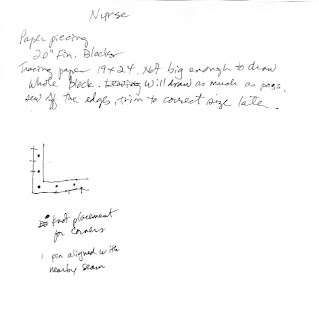 Nurse
Paper piecing
20" Fin. Blocks
Tracing paper 19x24. Not big enough to draw
whole block. Will draw as much as poss.
sew off the edges, trim to correct size late.
knot placement
for corners
pin aligned with
nearby seam